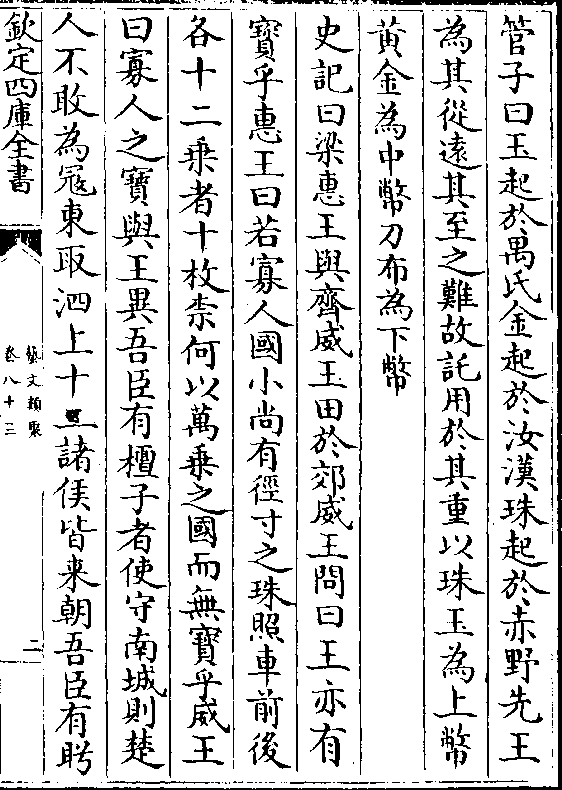 管子曰玉起於禺氏金起於汝漢珠起於赤野先王
為其從逺其至之難故託用於其重以珠玉為上幣
黄金為中幣刀布為下幣
史記曰梁惠王與齊威王田於郊威王問曰王亦有
寳乎惠王曰若寡人國小尚有徑寸之珠照車前後
各十二乗者十枚柰何以萬乗之國而無寳乎威王
曰寡人之寳與王異吾臣有檀子者使守南城則楚
人不敢為冦東取泗上十二諸侯皆来朝吾臣有盻
欽定四庫全書
藝文類聚
卷八十三
二